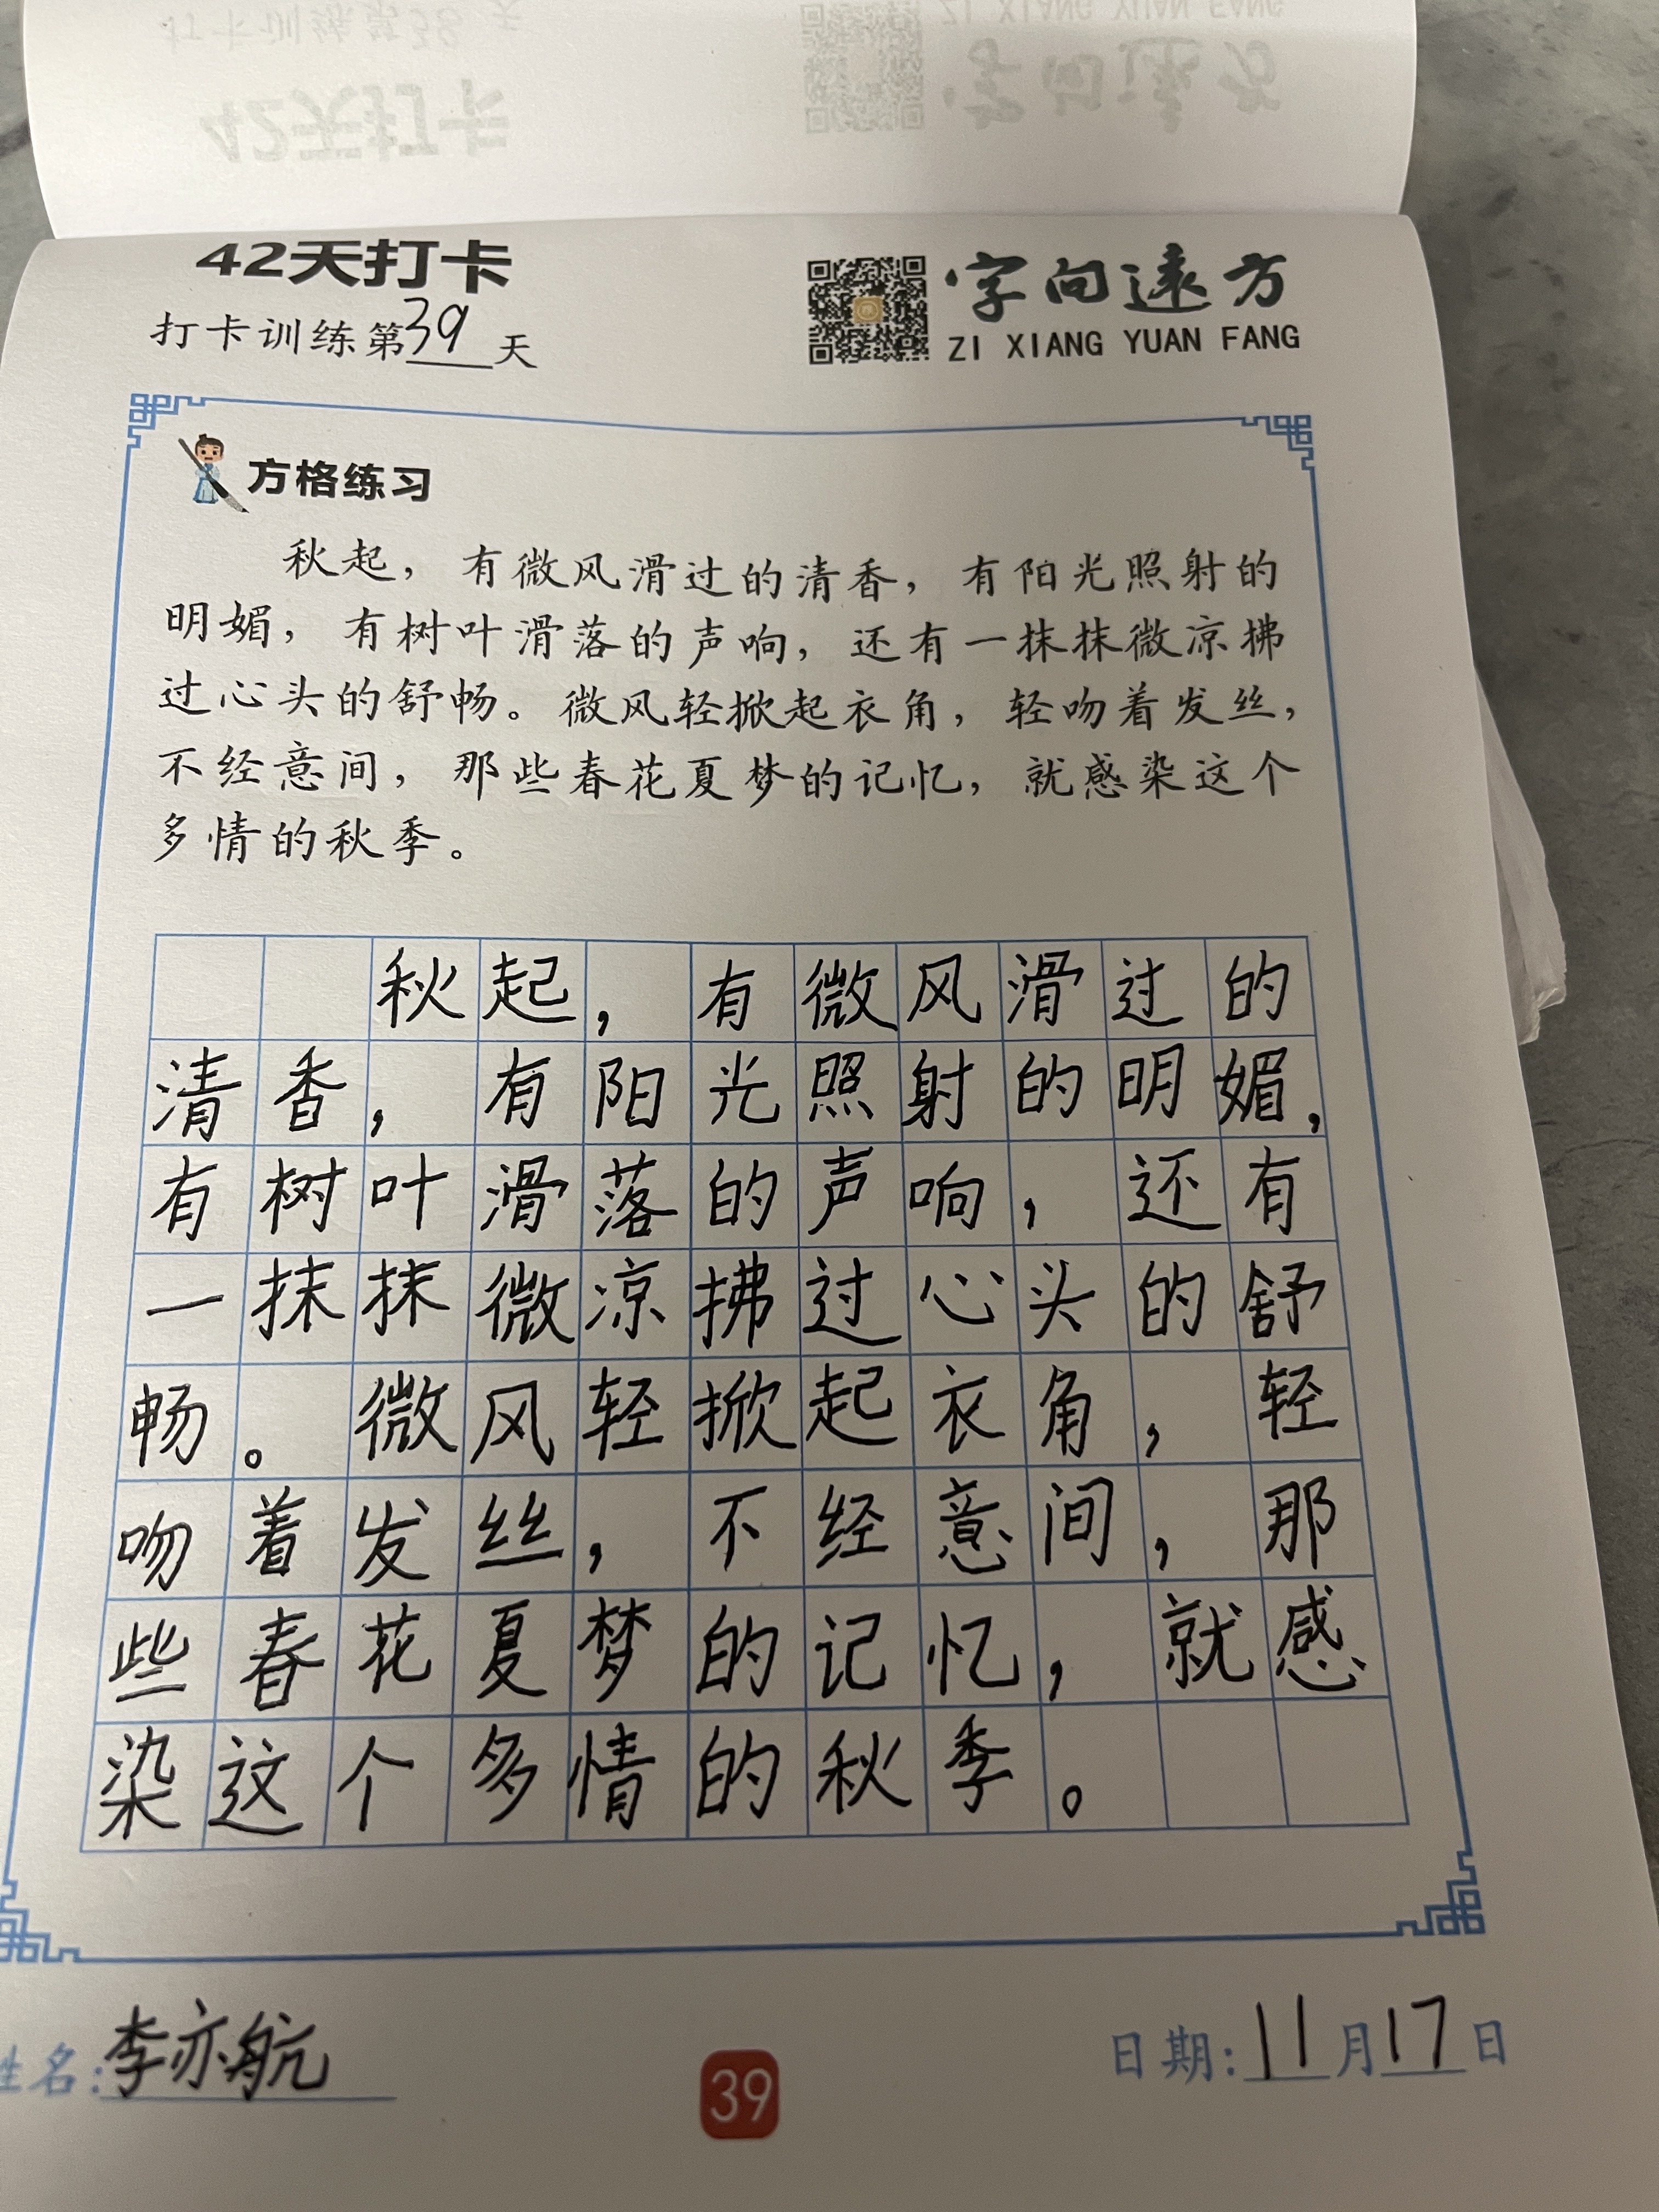 打卡训练第38天
42天打卡
ZI XIANG YUAN FANG
字向远方
42天打卡
打卡训练第39天
字向遠方
ZI XIANG YUAN FANG
方格练习
秋起，有微风滑过的清香，有阳光照射的
明媚，有树叶滑落的声响，还有一抹抹微凉拂
过心头的舒畅。微风轻掀起衣角，轻吻着发丝，
不经意间，那些春花夏梦的记忆，就感染这个
多情的秋季。
秋起，有微风滑过的
清香，有阳光照射的明媚，
有树叶滑落的声响，还有
一抹抹微凉拂过心头的舒
畅。微风轻掀起衣角，轻
吻着发丝，不经意间，那
些春花夏梦的记忆，就感
染这个多情的秋季。
姓名：李亦航
39
日期：11月17日